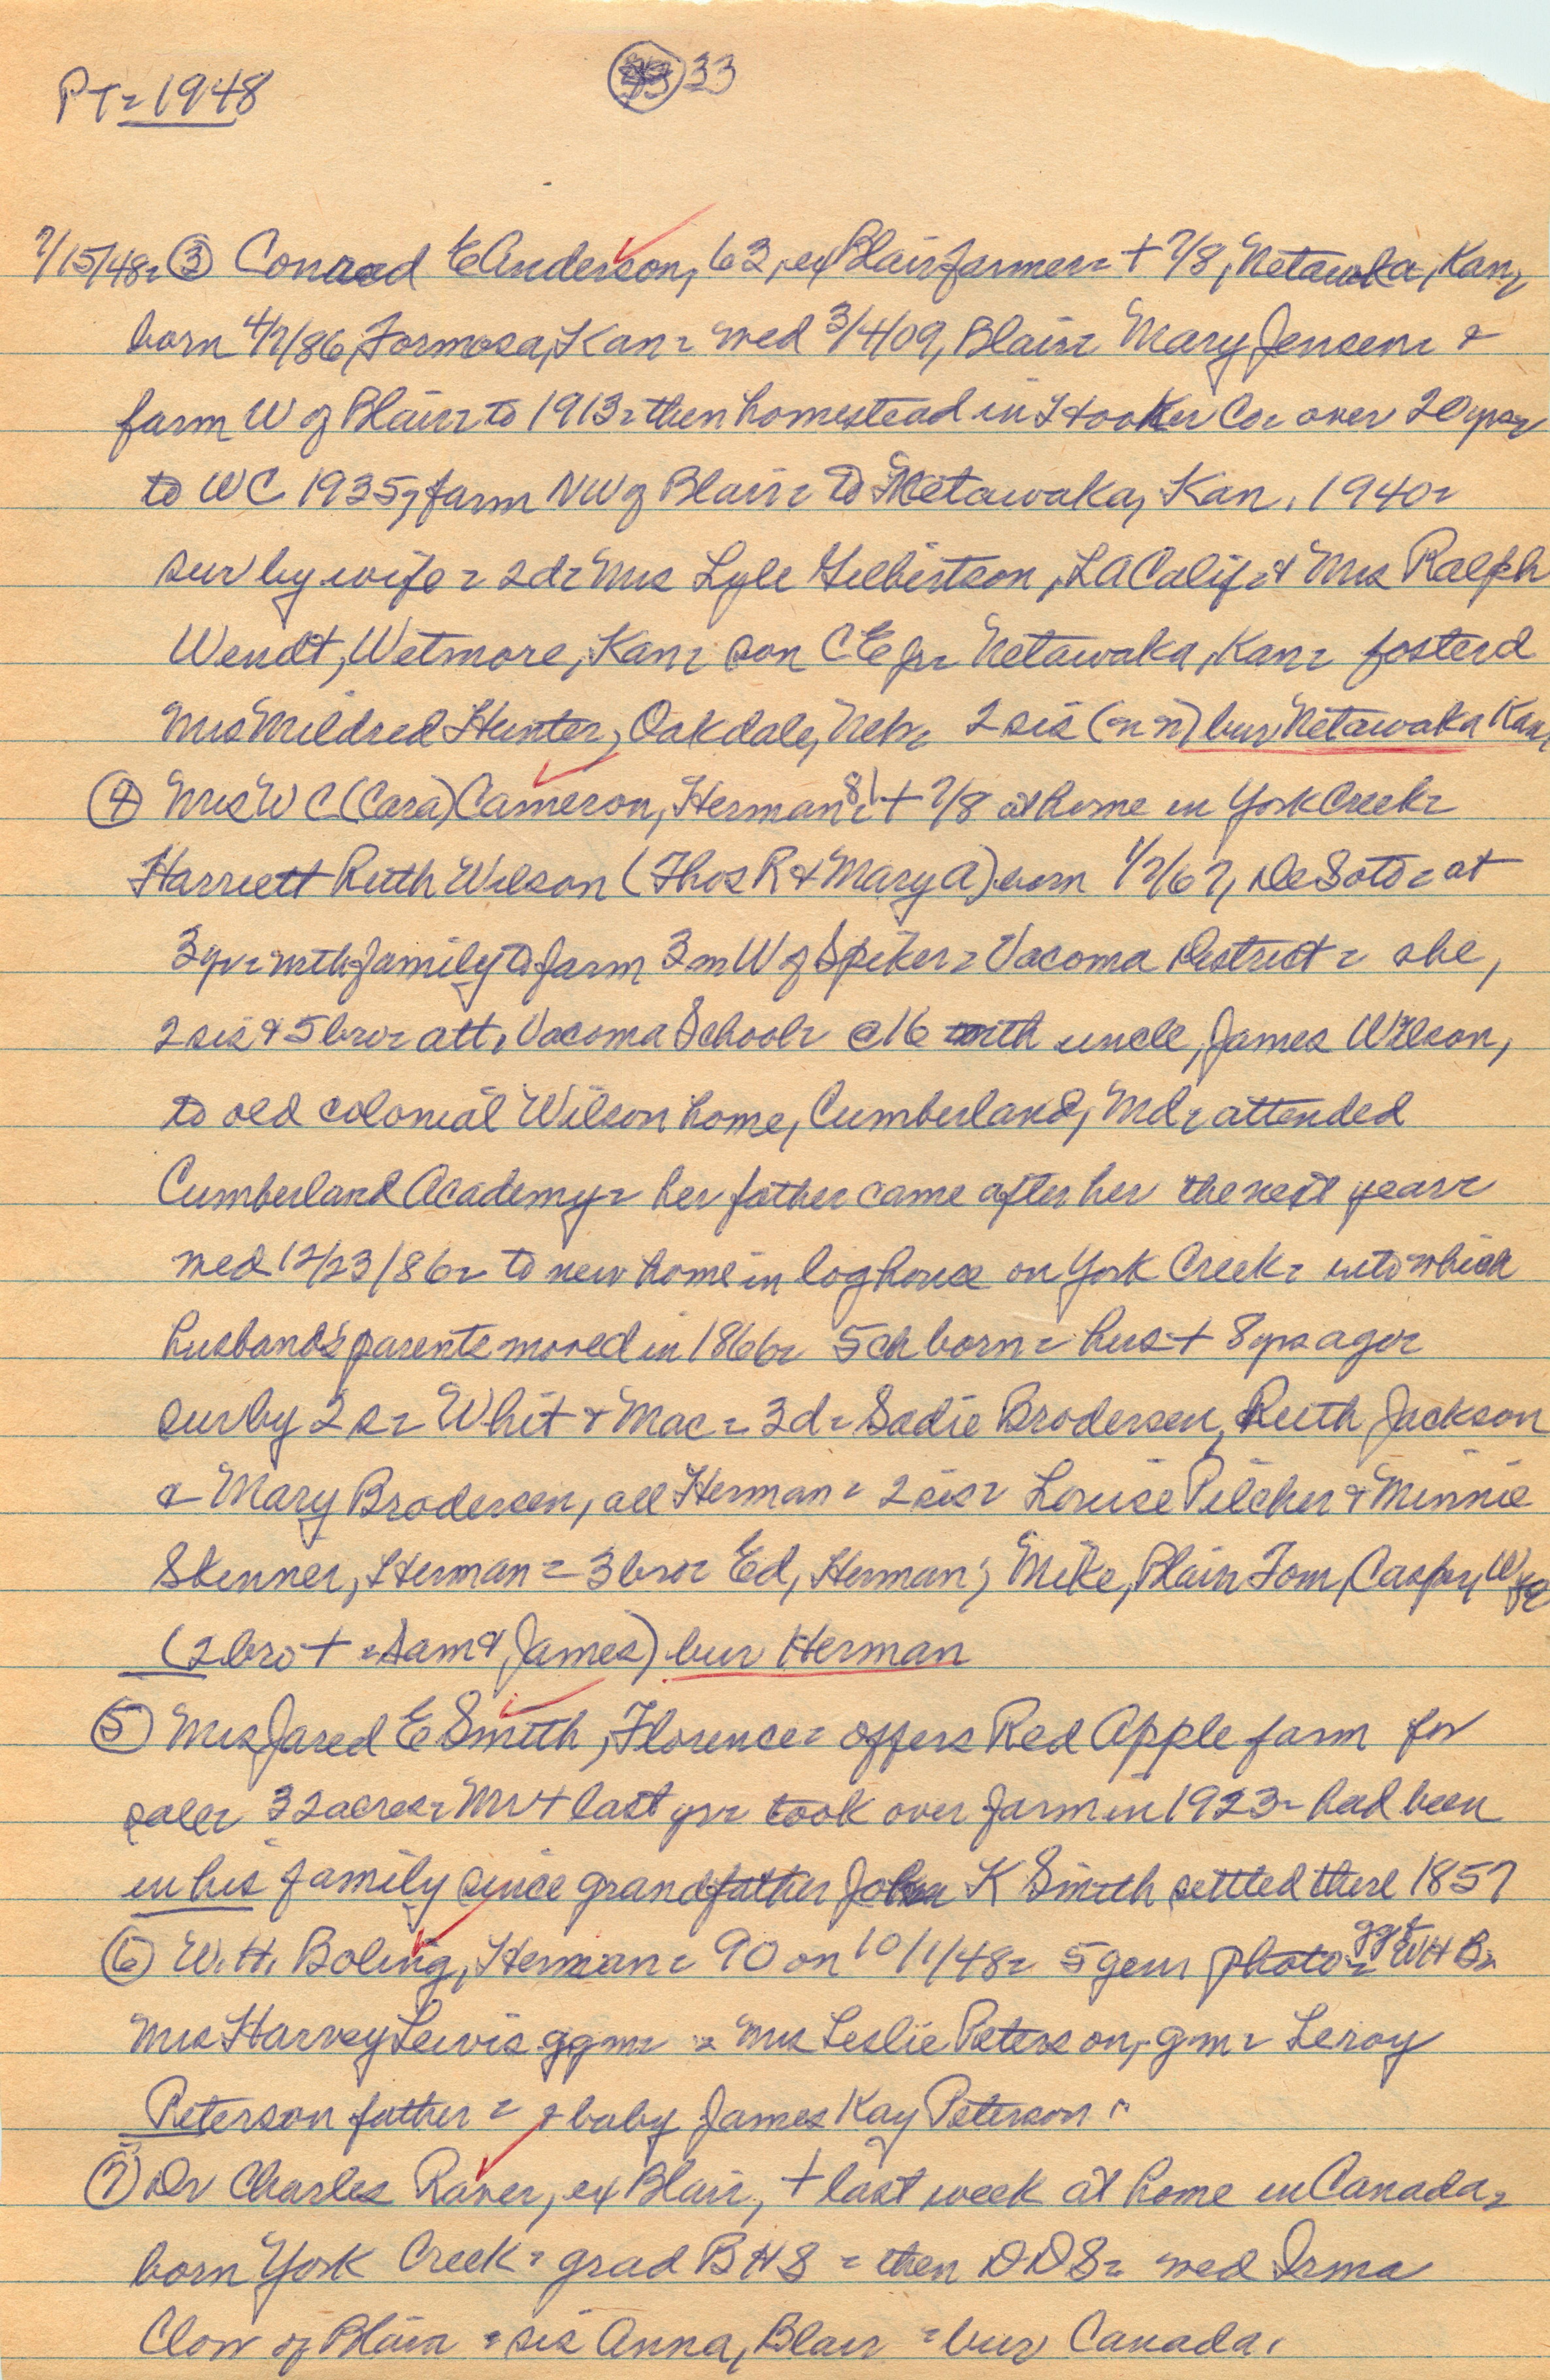 PT = 1948
33
7/15/48 = ③ Conrad E Anderson, 62, ex Blair farmer = + 7/8, Netawaka, Kan,
born 4/7/86, Formosa, Kan = wed 3/4/09, Blair = Mary Jensen = &
farm W of Blair = to 1913 = then homestead in Hooker Co = over 20 yrs =
to WC 1935, farm NW of Blair = to Netawaka, Kan, 1940 =
sur by wife = 2 d = Mrs Lyle Gilbertson, LA Calif = & Mrs Ralph
Wendt, Wetmore, Kan = son C E jr = Netawaka, Kan = foster d
Mrs Mildred Hunter, Oakdale, Neb = 2 sis (n n) bur Netawaka Kan,
④ Mrs W C (Cara) Cameron, Herman = 81 + 7/8 at home in York Creek =
Harriett Ruth Wilson (Thos R & Mary A) born 1/7/67, DeSoto = at
3 yr = with family to farm 3 m W of Spiker = Vacoma District = she,
2 sis & 5 bro = att, Vacoma School = @ 16 with uncle, James Wilson,
to old colonial Wilson home, Cumberland, Md = attended
Cumberland Academy = her father came after her the next year =
wed 12/23/86 = to new home in log house on York Creek = into which
husband's parents moved in 1866 = 5 ch born = hus + 8 yrs ago =
sur by 2 s = Whit & Mac = 3 d = Sadie Brodersen, Ruth Jackson
& Mary Brodersen, all Herman = 2 sis = Louise Pilcher & Minnie
Skinner, Herman = 3 bro = Ed, Herman; Mike, Blair Tom, Casper, Wyo
(2 bro + = Sam & James) bur Herman
⑤ Mrs Jared E Smith, Florence = offers Red Apple farm for
sale = 32 acres = Mr + last yr = took over farm in 1923 = had been
in his family since grandfather John K Smith settled there 1857
⑥ W. H. Boling, Herman = 90 on 10/1/48 = 5 gen photo = WHB =
Mrs Harvey Lewis ggm = Mrs Leslie Peterson, gm = Leroy
Peterson father = & baby James Kay Peterson
⑦ Dr Charles Raver, ex Blair, + last week at home in Canada =
born York Creek = grad BHS = then DDS = wed Irma
Clow of Blair = sis Anna, Blair = bur Canada.